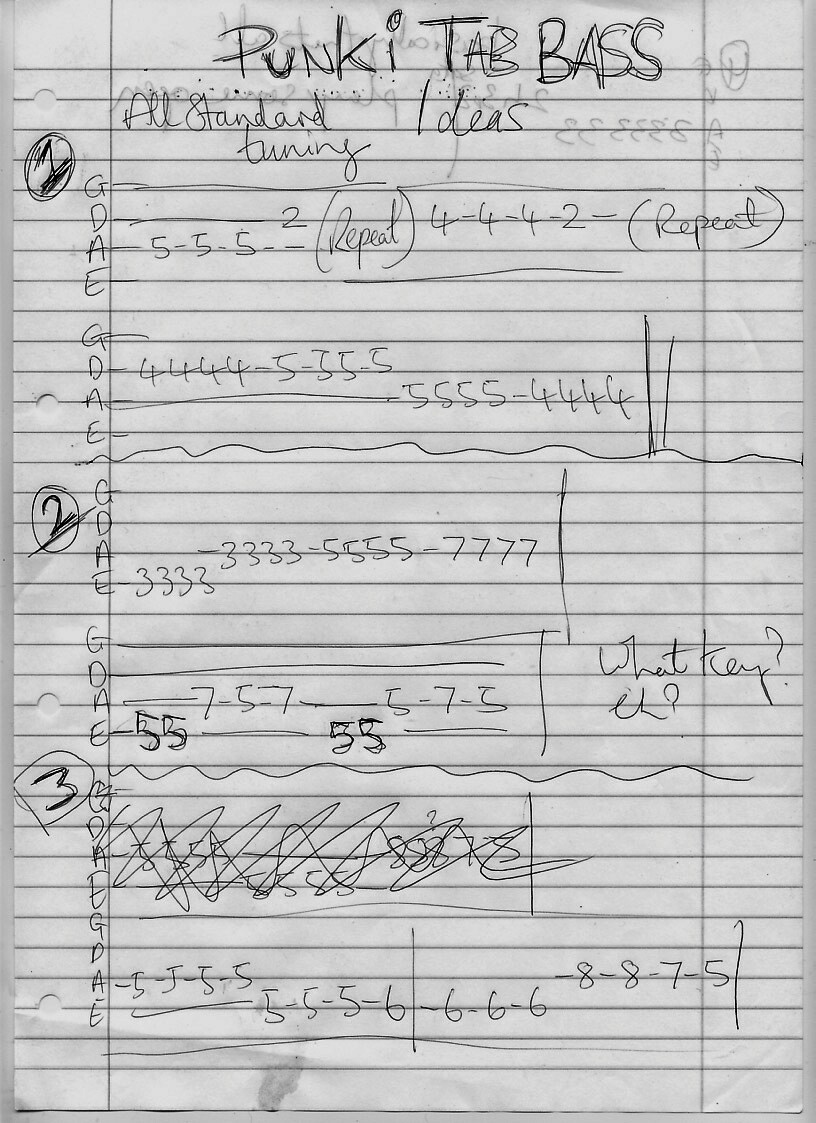 PUNKi TAB BASS
All Standard Ideas
tuning
1
G
D 2 (Repeat) 4-4-4-2- (Repeat)
A 5-5-5--
E
G
D-4444-5-55-5
A 5555-4444
E
2
G
D
A -3333-5555-7777
E-3333
G
D
A 7-5-7 5-7-5
E-55 55
What key?
eh?
3
G
D
A
E
G
D
A -5-5-5-5 -8-8-7-5
E 5-5-5-6 -6-6-6